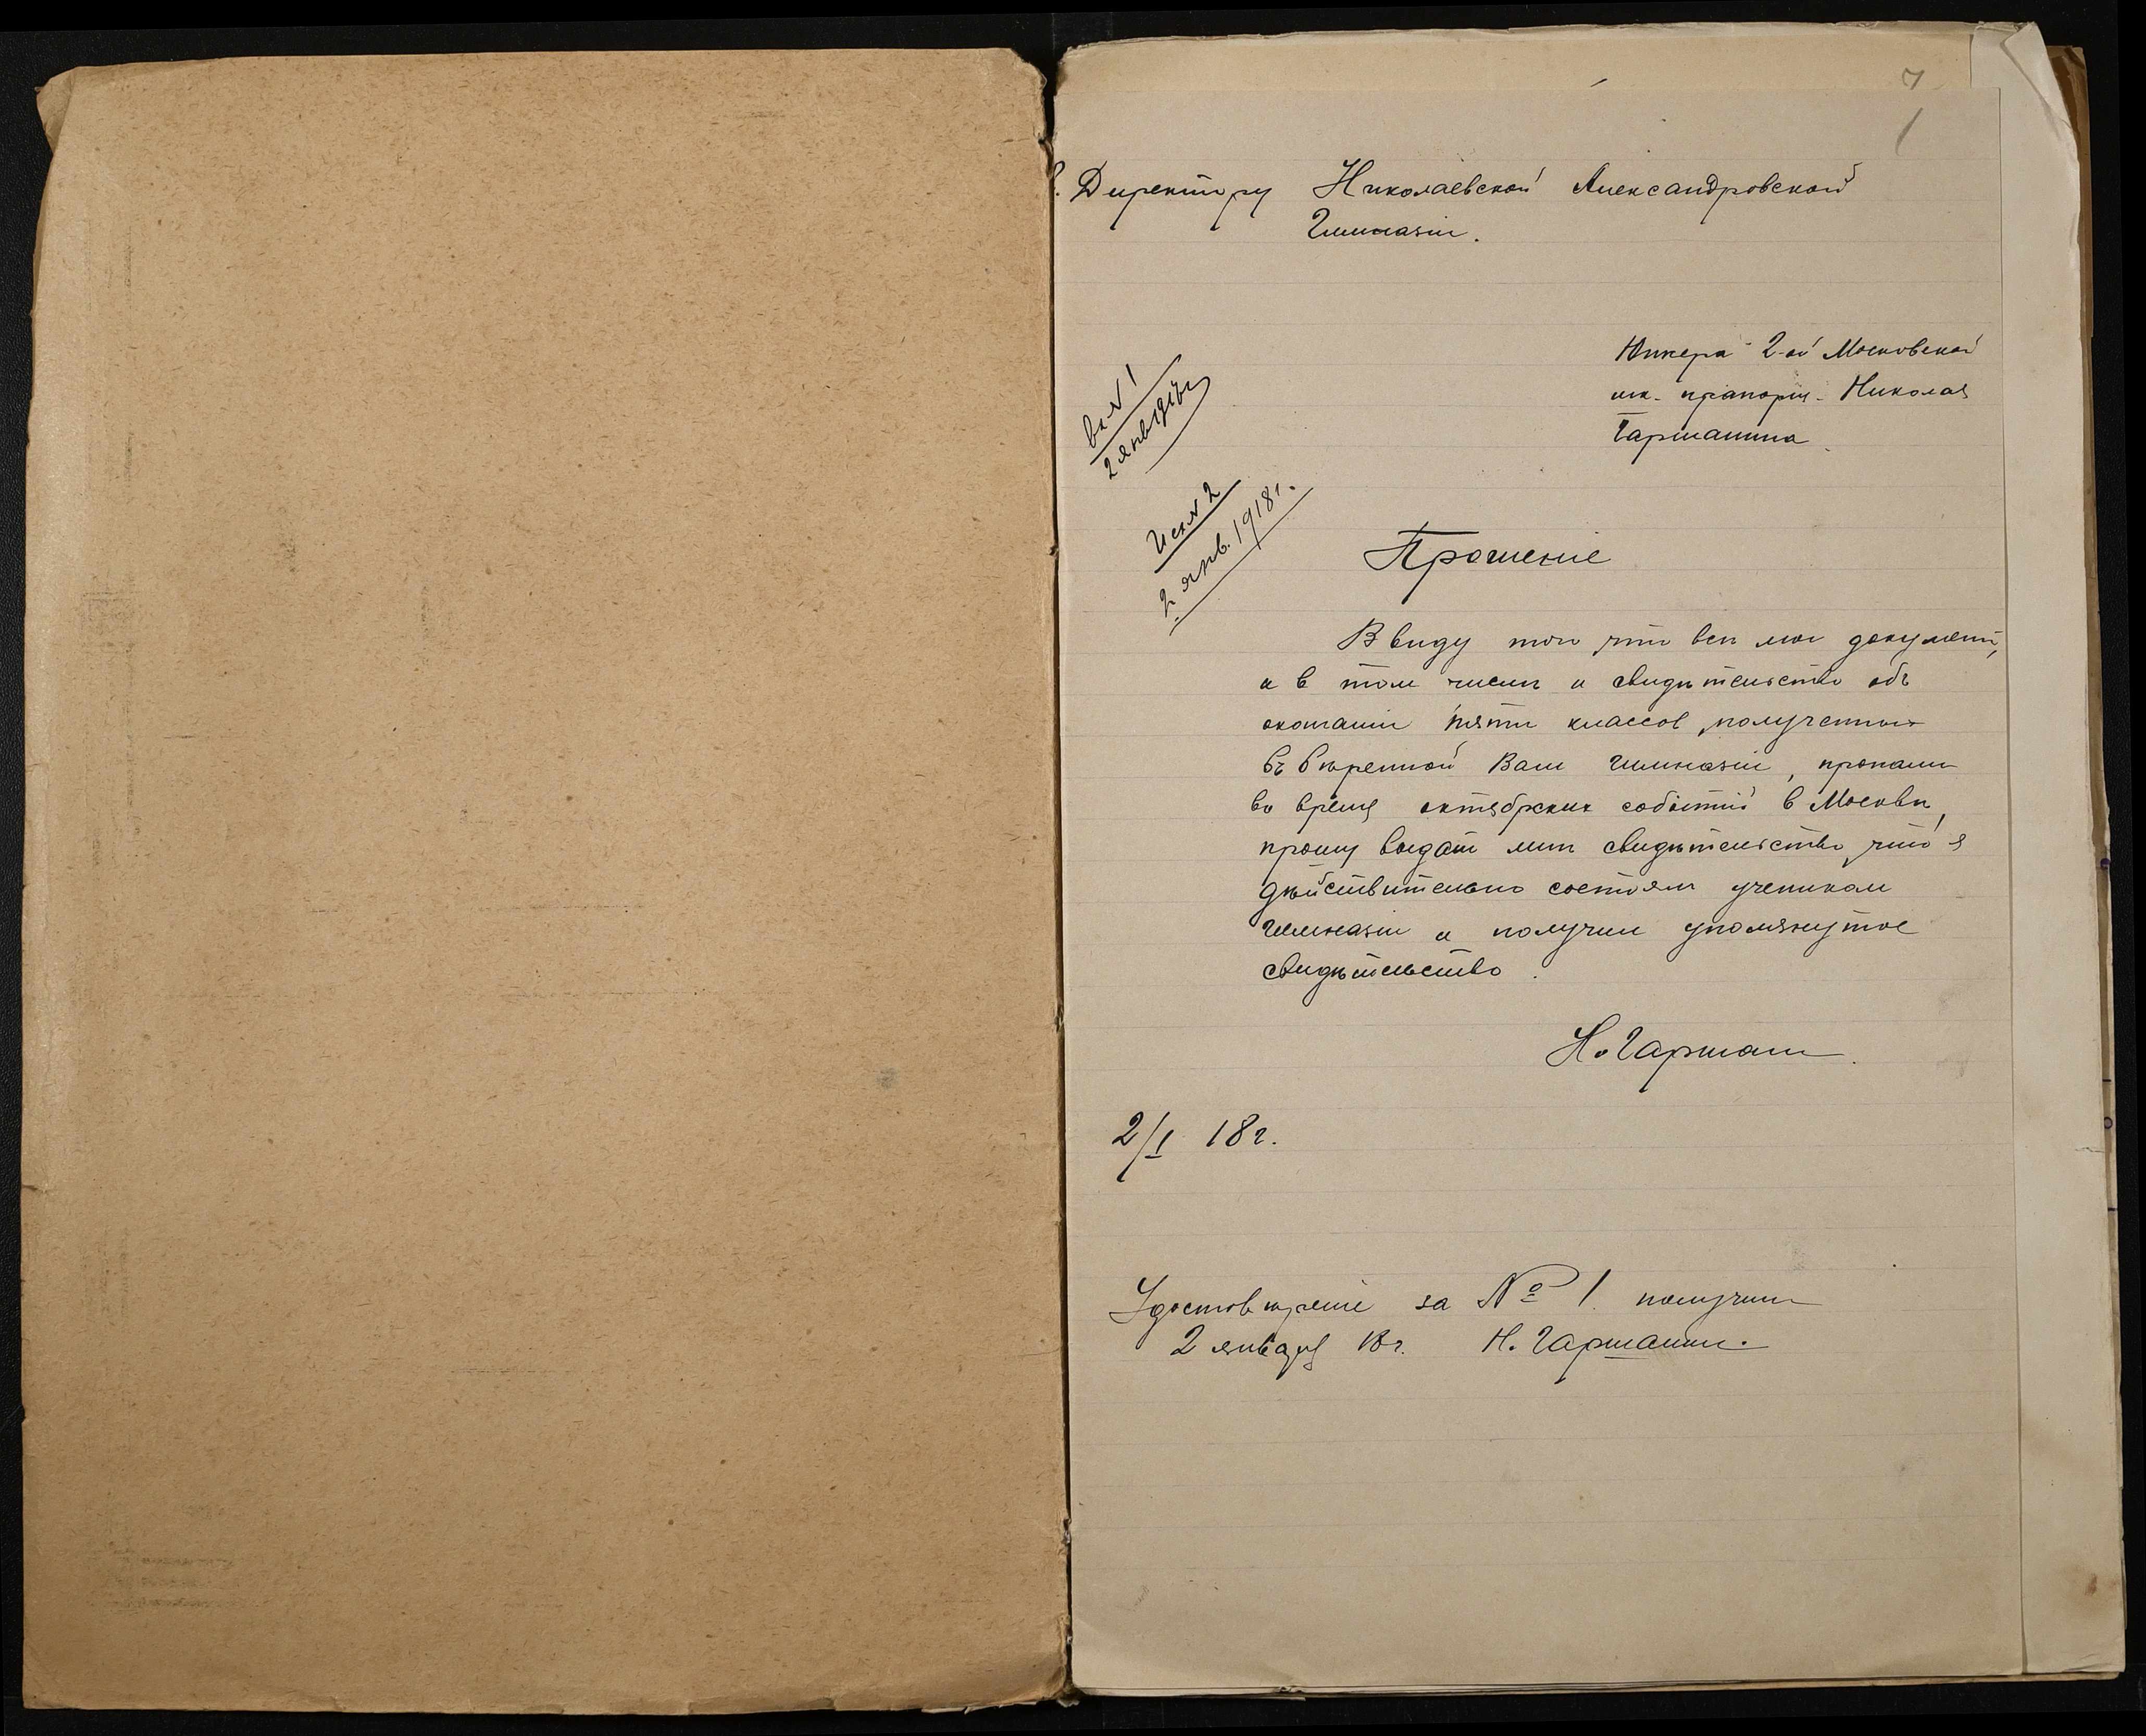 7
1
Г. Директору Николаевской Александровской
Гимназіи.
Юнкера 2-ой Московской
шк. прапорщ. Николая
Гаршанина
вх № 1
2 янв 1918 г
Исх № 2
2 янв. 1918 г.
Прошеніе
Ввиду того что все мои документ,
и в том числѣ и свидѣтельство объ
окончаніи пяти классов, полученных
въ ввѣренной Вам гимназіи, пропали
во время октябрских событій в Москвѣ,
прошу выдать мнѣ свидѣтельство, что я
дѣйствительно состоял учеником
гимназіи и получил упомянутое
свидѣтельство.
Н. Гаршанин.
2/I 18 г.
Удостовѣреніе за № 1 получил
2 января 18 г. Н. Гаршанин.